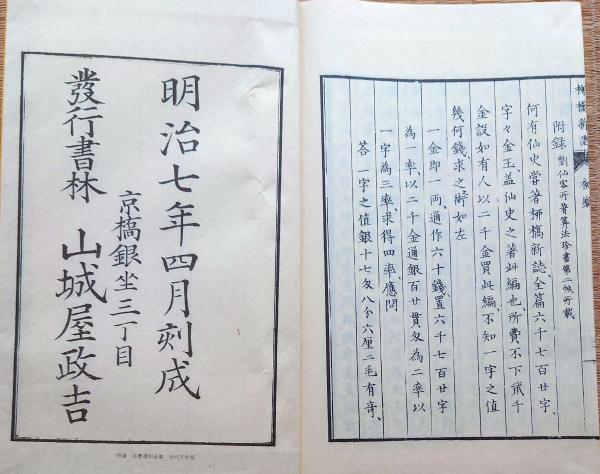 柳橋新誌
附録 劉仙客所著算法珍書第二帙所載
何有仙史、嘗著栁橋新誌、全篇六千七百廿字、
字々金玉盖仙史之著此編也、所費不下貳千
金設如有人以二千金買此編、不知一字之值
幾何錢、求之術如左
一金即一两通作六十錢、置六千七百廿字
為一率、以二千金通銀百廿貫匁為二率以
一字為三率、求得四率、應問
荅 一字之值銀十七匁八分六厘二毛有奇、
明治七年四月刻成
京橋銀坐三丁目
發行書林 山城屋政吉
特選 名著複刻全集 近代文学館